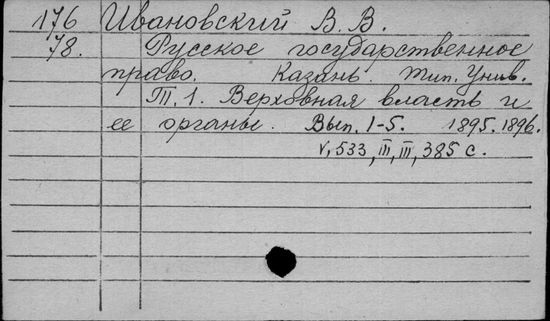 176 Ивановский В. В.
78. Русское государственное
право. Казань. Тип. Унив.
Т. 1. Верховная власть и
ее органы. Вып. 1-5. 1895.1896.
V, 533, III, III, 385 с.